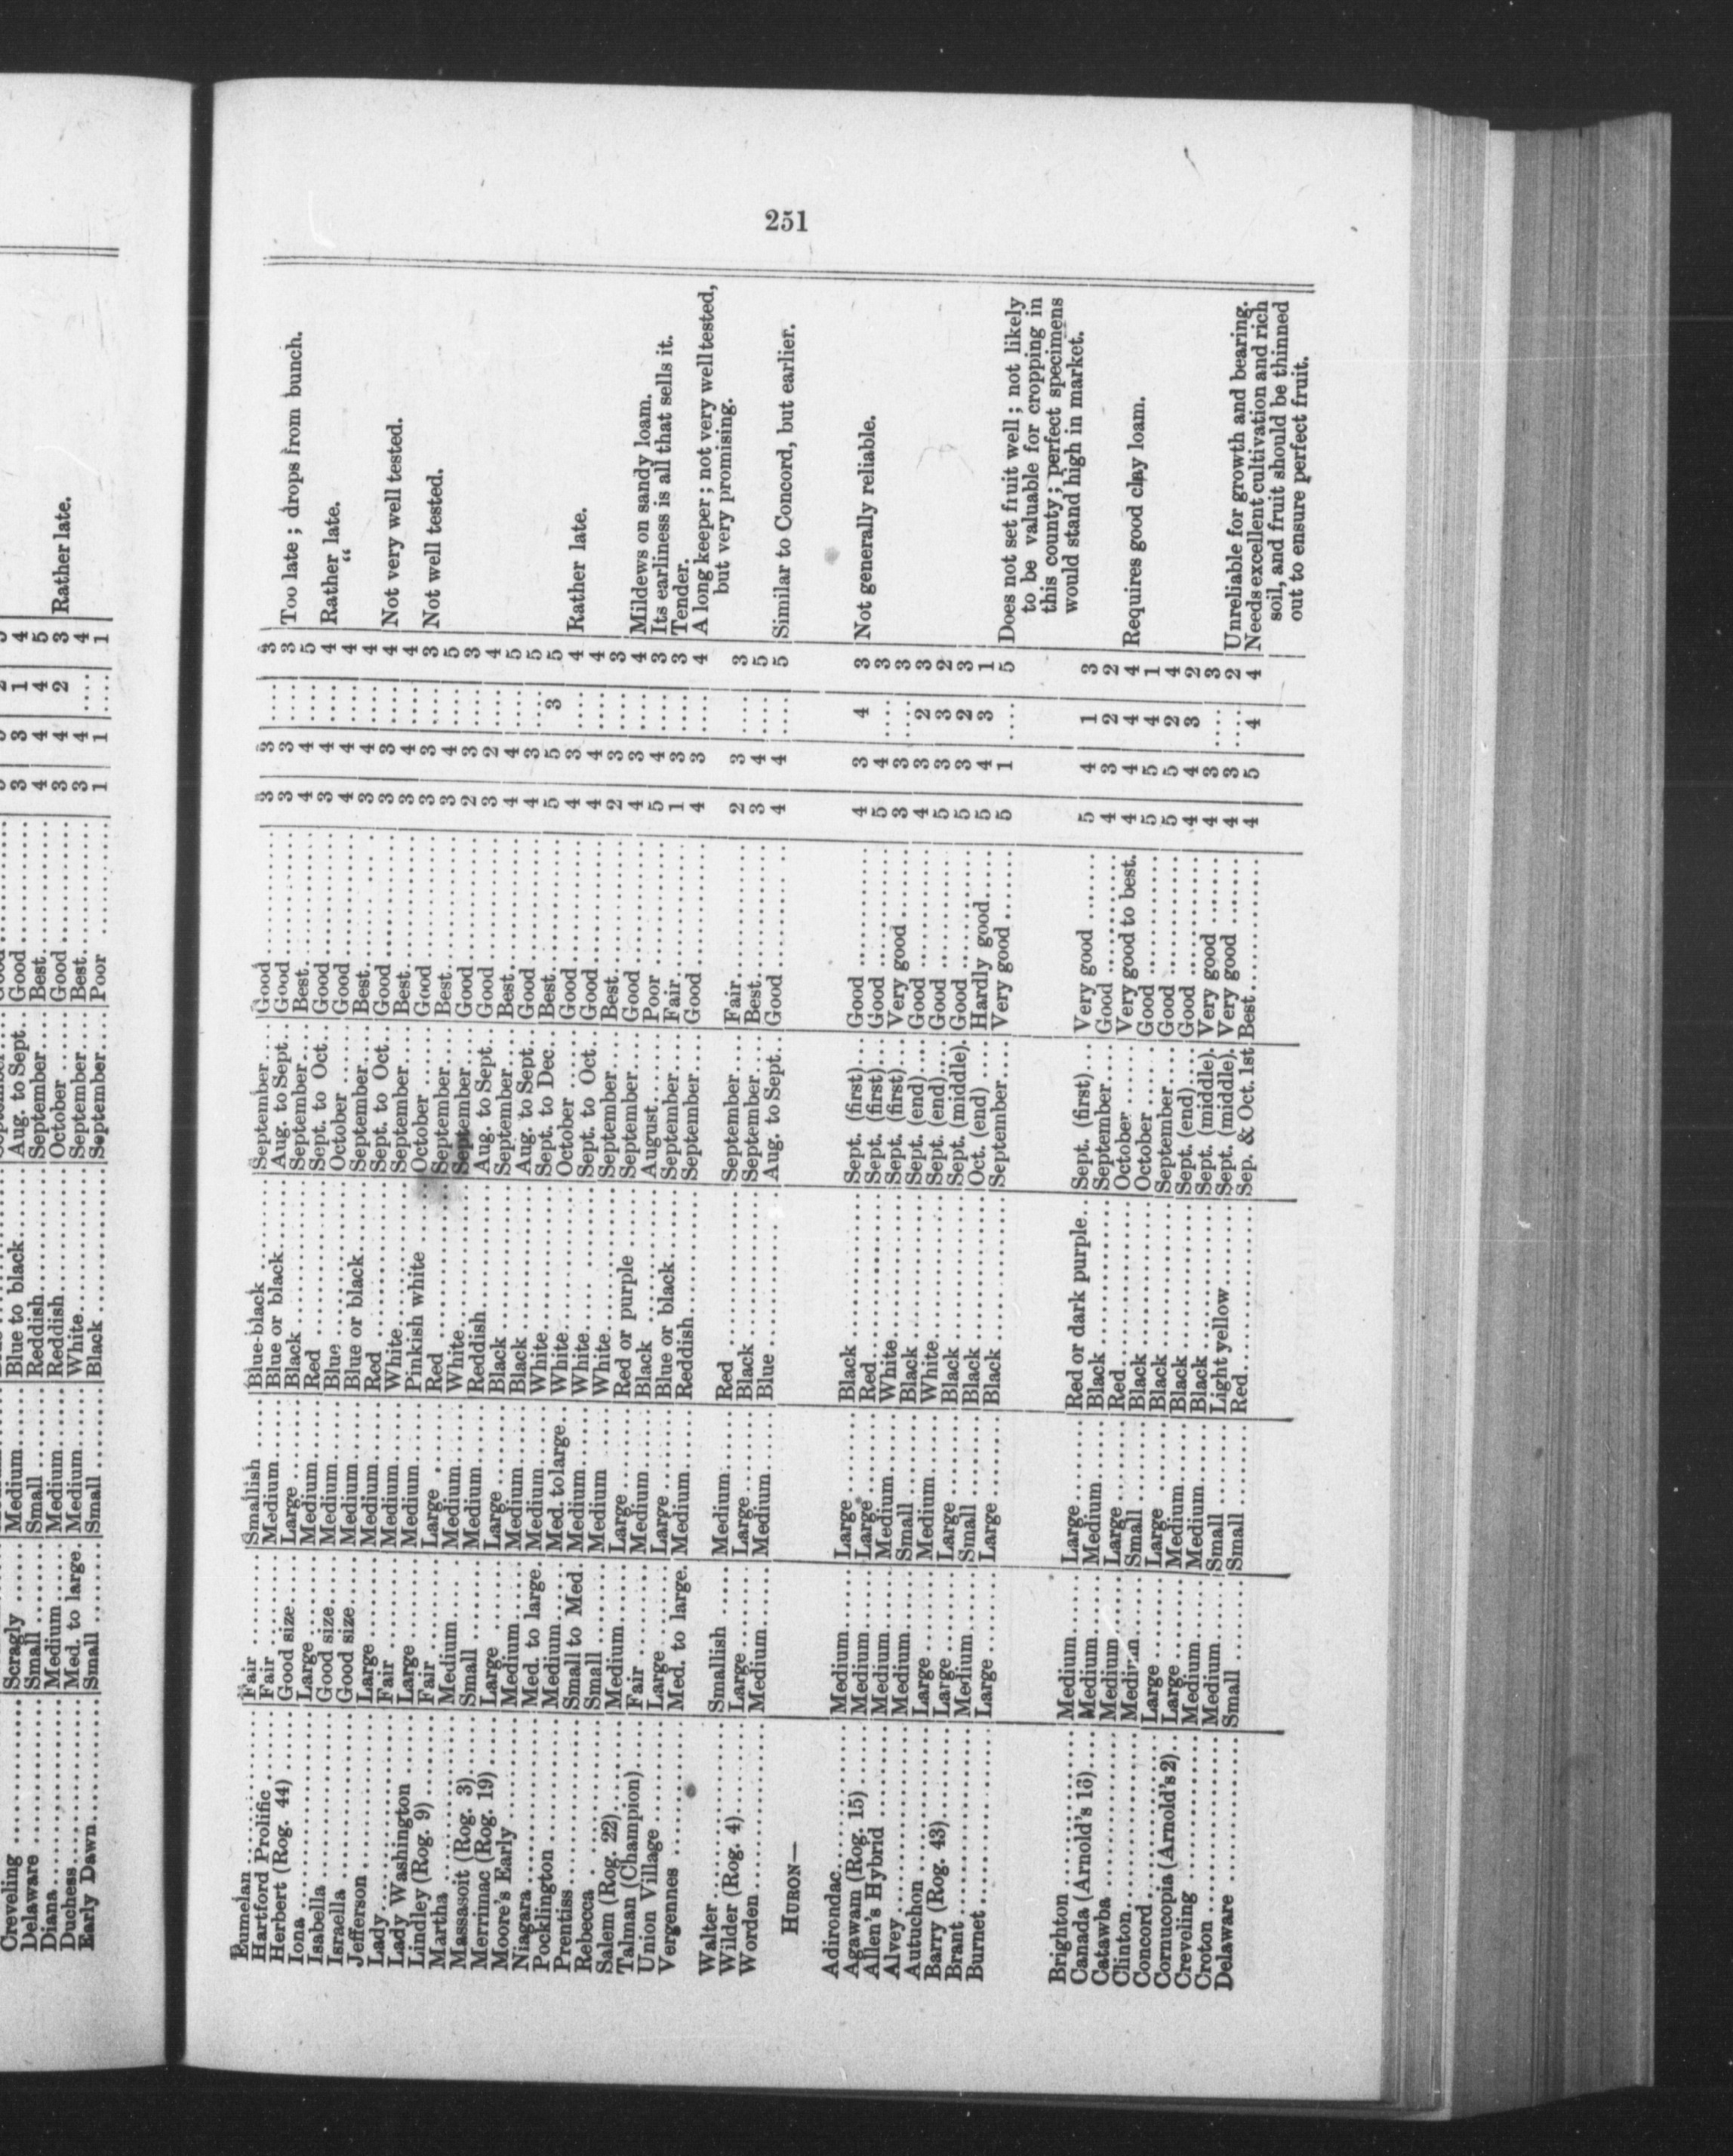 251
Creveling Scragly Medium Blue to black Aug. to Sept. Good 3 3 1 4
Delaware Small Small Reddish September Best 4 4 4 5
Diana Medium Medium Reddish October Good 3 4 2 3 Rather late.
Duchess Med. to large. Medium White September Best 3 4 .... 4
Early Dawn Small Small Black September Poor 1 1 .... 1
Eumelan Fair Smallish Blue-black September Good 3 3 .... 3
Hartford Prolific Fair Medium Blue or black Aug. to Sept. Good 3 3 .... 3 Too late ; drops from bunch.
Herbert (Rog. 44) Good size Large Black September Best 4 4 .... 5
Iona Large Medium Red Sept. to Oct. Good 3 4 .... 4 Rather late.
Isabella Good size Medium Blue October Good 4 4 .... 4 “
Israella Good size Medium Blue or black September Best 3 4 .... 4
Jefferson Large Medium Red Sept. to Oct. Good 3 3 .... 4 Not very well tested.
Lady Fair Medium White September Best 3 4 .... 4
Lady Washington Large Medium Pinkish white October Good 3 3 .... 3 Not well tested.
Lindley (Rog. 9) Fair Large Red September Best 3 4 .... 5
Martha Medium Medium White September Good 2 3 .... 3
Massasoit (Rog. 3) Small Medium Reddish Aug. to Sept. Good 3 2 .... 4
Merrimac (Rog. 19) Large Large Black September Best 4 4 .... 5
Moore's Early Medium Medium Black Aug. to Sept. Good 4 3 .... 5
Niagara Med. to large. Medium White Sept. to Dec. Best 5 5 3 5
Pocklington Medium Med. to large White October Good 4 3 .... 4 Rather late.
Prentiss Small to Med. Medium White Sept. to Oct. Good 4 4 .... 4
Rebecca Small Medium White September Best 2 3 .... 3
Salem (Rog. 22) Medium Large Red or purple September Good 4 3 .... 4 Mildews on sandy loam.
Talman (Champion) Fair Medium Black August Poor 5 4 .... 3 Its earliness is all that sells it.
Union Village Large Large Blue or black September Fair 1 3 .... 3 Tender.
Vergennes Med. to large. Medium Reddish September Good 4 3 .... 4 A long keeper ; not very well tested,
but very promising.
Walter Smallish Medium Red September Fair 2 3 .... 3
Wilder (Rog. 4) Large Large Black September Best 3 4 .... 5
Worden Medium Medium Blue Aug. to Sept. Good 4 4 .... 5 Similar to Concord, but earlier.
HURON—
Adirondac Medium Large Black Sept. (first) Good 4 3 4 3 Not generally reliable.
Agawam (Rog. 15) Medium Large Red Sept. (first) Good 5 4 .... 3
Allen's Hybrid Medium Medium White Sept. (first) Very good 3 3 .... 3
Alvey Medium Small Black Sept. (end) Good 4 3 2 3
Autuchon Large Medium White Sept. (end) Good 5 3 3 2
Barry (Rog. 43) Large Large Black Sept. (middle) Good 5 3 2 3
Brant Medium Small Black Oct. (end) Hardly good 5 4 3 1
Burnet Large Large Black September Very good 5 1 .... 5 Does not set fruit well ; not likely
to be valuable for cropping in
this county ; perfect specimens
would stand high in market.
Brighton Medium Large Red or dark purple Sept. (first) Very good 5 4 1 3
Canada (Arnold's 16) Medium Medium Black September Good 4 3 2 2
Catawba Medium Large Red October Very good to best. 4 4 4 4 Requires good clay loam.
Clinton Medium Small Black October Good 5 5 4 1
Concord Large Large Black September Good 5 5 2 4
Cornucopia (Arnold's 2) Large Medium Black Sept. (end) Good 4 4 3 2
Creveling Medium Medium Black Sept. (middle) Very good 4 3 .... 3
Croton Medium Small Light yellow Sept. (middle) Very good 4 3 .... 2 Unreliable for growth and bearing.
Delaware Small Small Red Sep. & Oct. 1st Best 4 5 4 4 Needs excellent cultivation and rich
soil, and fruit should be thinned
out to ensure perfect fruit.